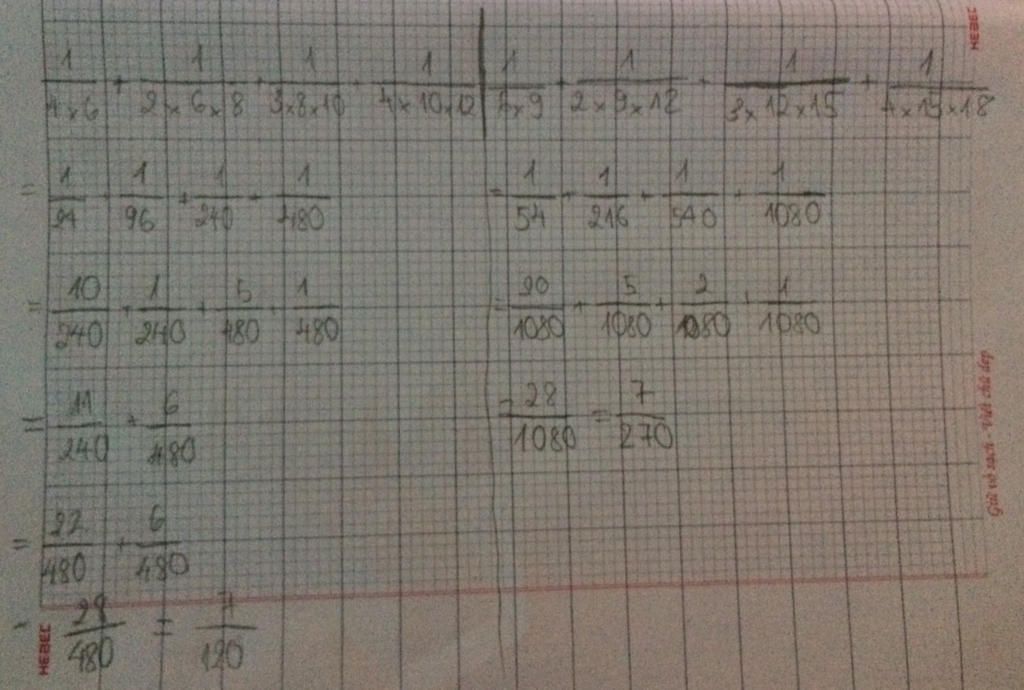 HEBEC
1/4×6 + 1/2×6×8 + 1/3×8×10 + 1/4×10×12
= 1/24 + 1/96 + 1/240 + 1/480
= 10/240 + 1/240 + 5/480 + 1/480
= 11/240 + 6/480
= 22/480 + 6/480
= 28/480 = 7/120
1/×9 + 1/2×9×12 + 1/3×12×15 + 1/4×15×18
= 1/54 + 1/216 + 1/540 + 1/1080
= 20/1080 + 5/1080 + 2/1080 + 1/1080
= 28/1080 = 7/270
Giữ vở sạch - Viết chữ đẹp
HEBEC